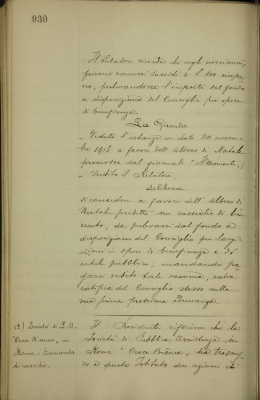 930
Il Relatore ricorda che negli scorsi anni,
furono concessi sussidi di L. 100
prelevandone l'importo dal fondo
a disposizione del Consiglio per opere
di beneficenza.
La Giunta
- Veduta l'istanza in data 20 novem-
bre 1913 a favore dell'albero di Natale
promosso dal giornale "Il Momento";
- Sentito il Relatore,
delibera
di concedere a favore dell'Albero di
Natale predetto un sussidio di
cento, da prelevarsi dal fondo a
disposizione del Consiglio per largi-
zioni in opere di beneficenza e di
utilità pubblica, mandando pa-
garsi subito tale somma, salva
ratifica del Consiglio stesso nella
sua prima prossima adunanza.
12) Società di P. A.
"Croce Bianca" in
Roma - Domanda
di sussidio.
Il Presidente riferisce che la
Società di Pubblica Assistenza in
Roma "Croce Bianca" ha
a questo Istituto